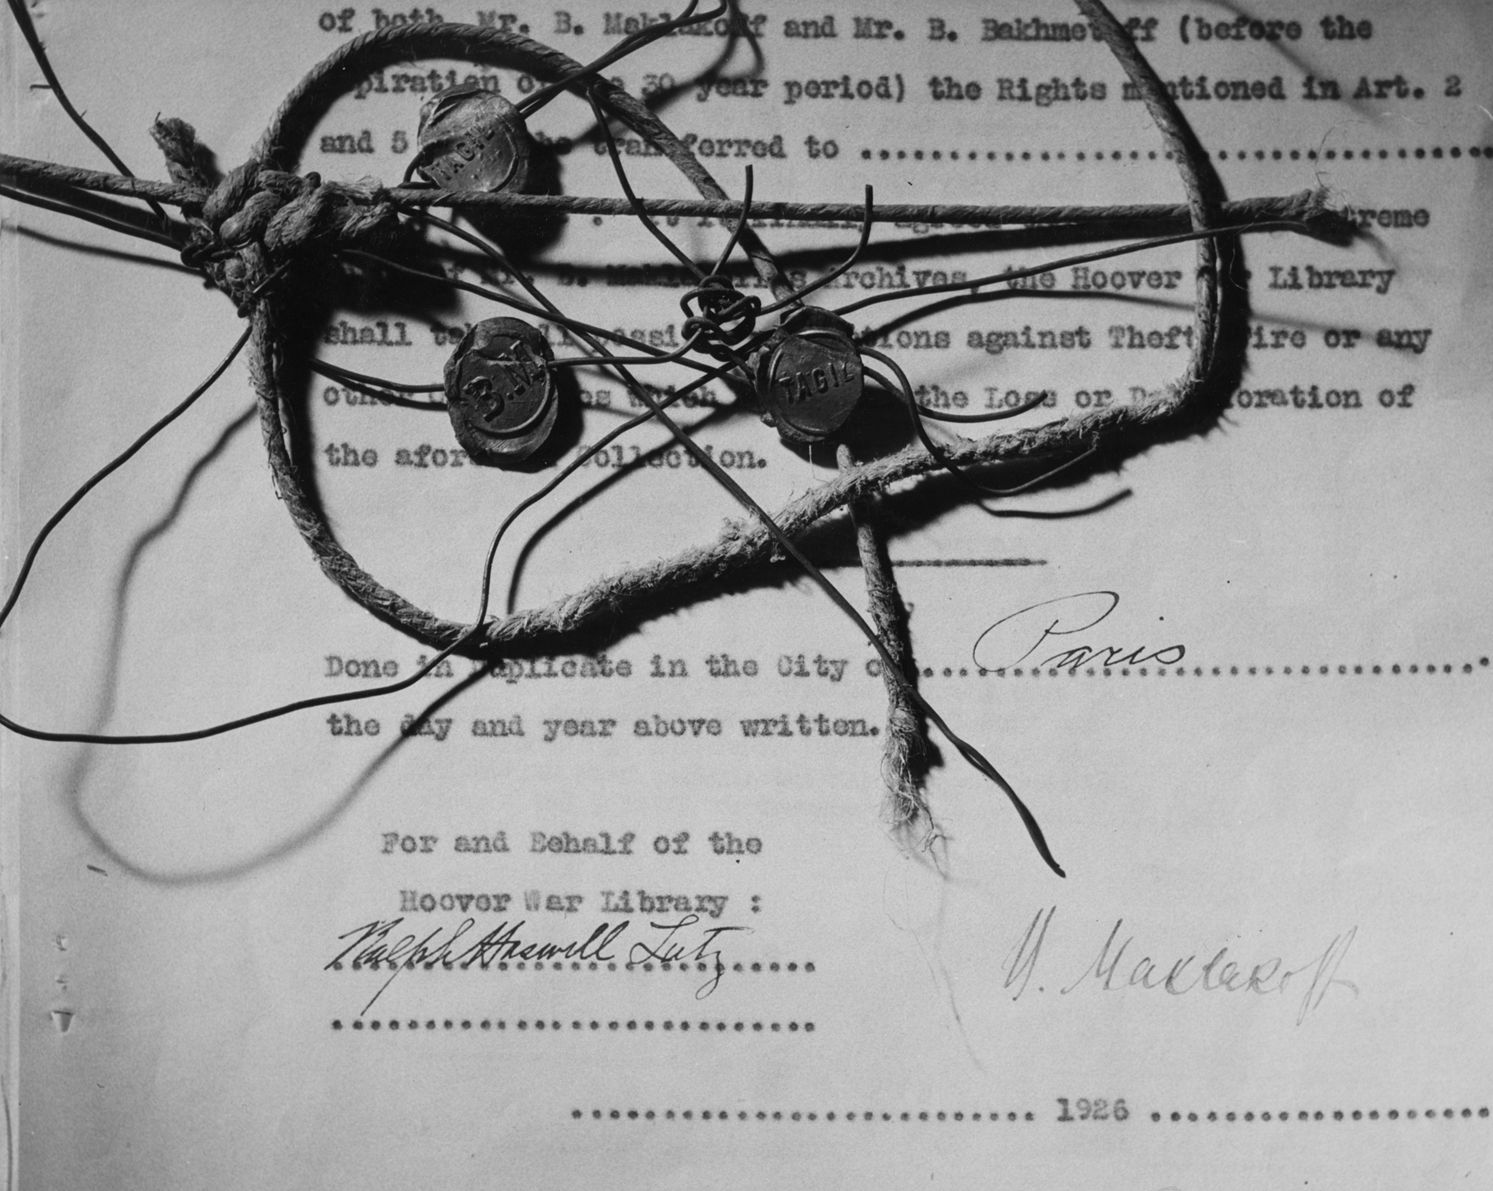 of both Mr. B. Maklakoff and Mr. B. Bakhmetoff (before the
piration of 30 year period) the Rights mentioned in Art. 2
and 5 transferred to ........................................
TAGIL
: agreed treme
of Mr. B. Archives, the Hoover War Library
shall against Theft Fire or any
B.M
TAGIL
other which the Loss or Deterioration of
the aforesaid Collection.
Done in Duplicate in the City of ....Paris....................
the day and year above written.
For and Behalf of the
Hoover War Library :
Ralph Haswell Lutz
W. Maklakoff
.......................... 1926 ........................